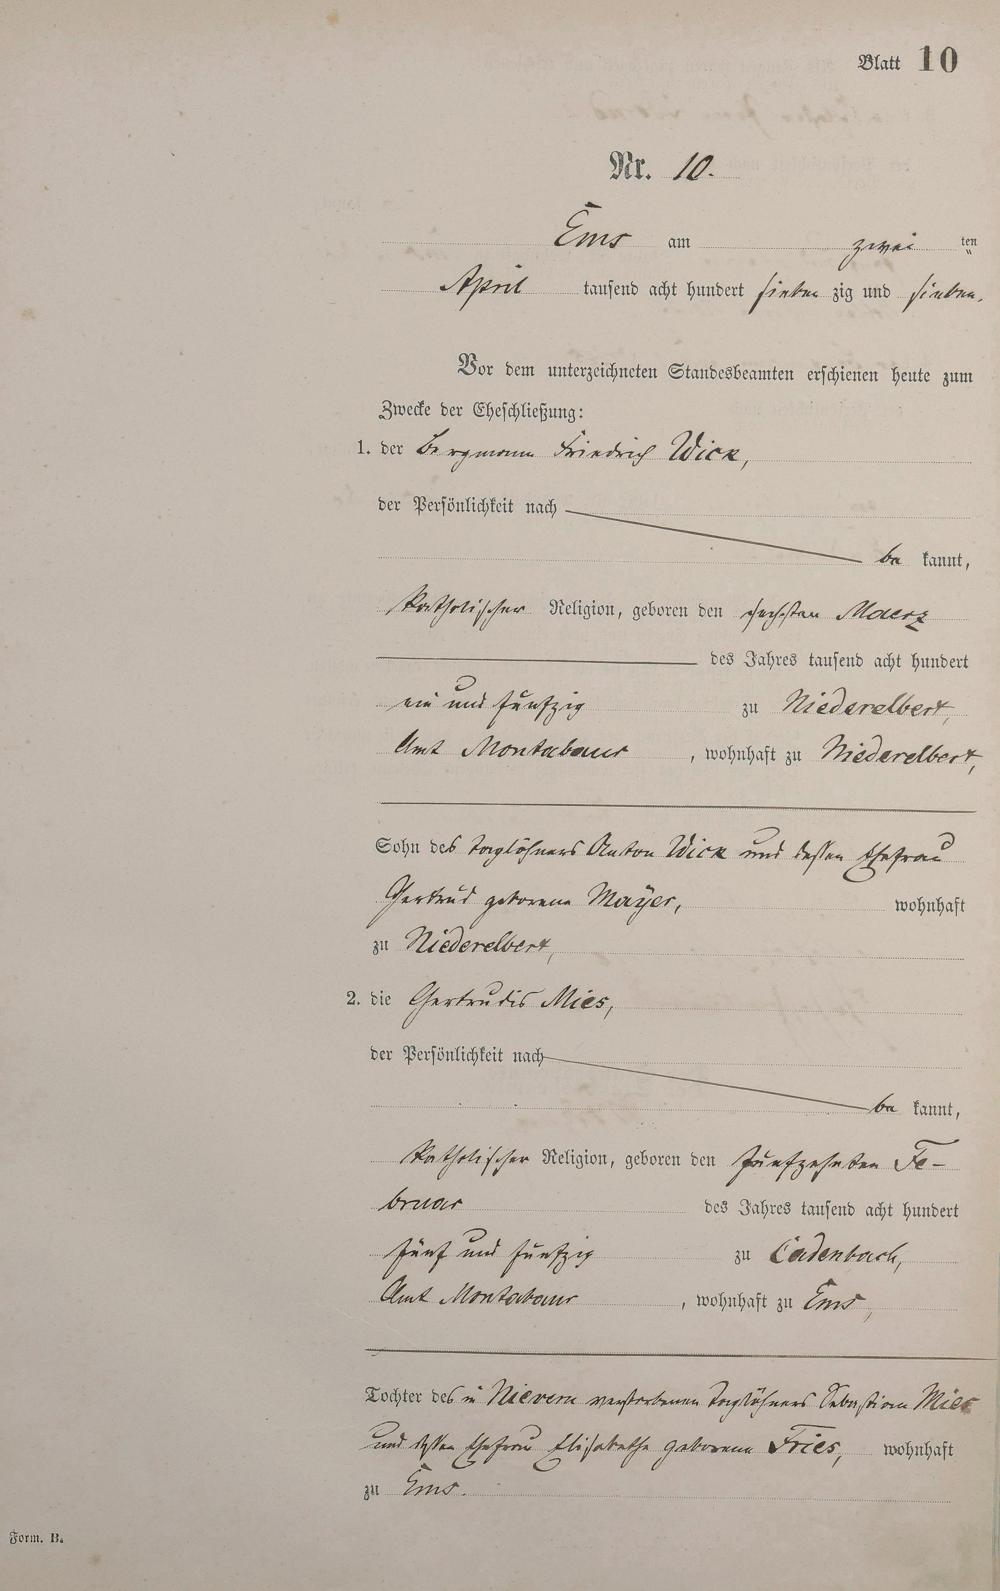 Blatt 10
Nr. 10.
Ems am zwei ten
April tausend acht hundert sieben zig und sieben.
Vor dem unterzeichneten Standesbeamten erschienen heute zum
Zwecke der Eheschließung:
1. der Bergmann Friedrich Wick,
der Persönlichkeit nach
be kannt,
katholischer Religion, geboren den sechsten Maerz
des Jahres tausend acht hundert
ein und fünfzig zu Niederelbert,
Amt Montabaur, wohnhaft zu Niederelbert,
Sohn des Taglöhners Anton Wick und dessen Ehefrau
Gertrud geborene Mayer, wohnhaft
zu Niederelbert,
2. die Gertrudis Mies,
der Persönlichkeit nach
be kannt,
katholischer Religion, geboren den fünfzehnten Fe-
bruar des Jahres tausend acht hundert
fünf und fünfzig zu Cadenbach,
Amt Montabaur, wohnhaft zu Ems,
Tochter des in Nievern verstorbenen Taglöhners Sebastian Mies
und dessen Ehefrau Elisabethe geborene Fries, wohnhaft
zu Ems.
Form. B.